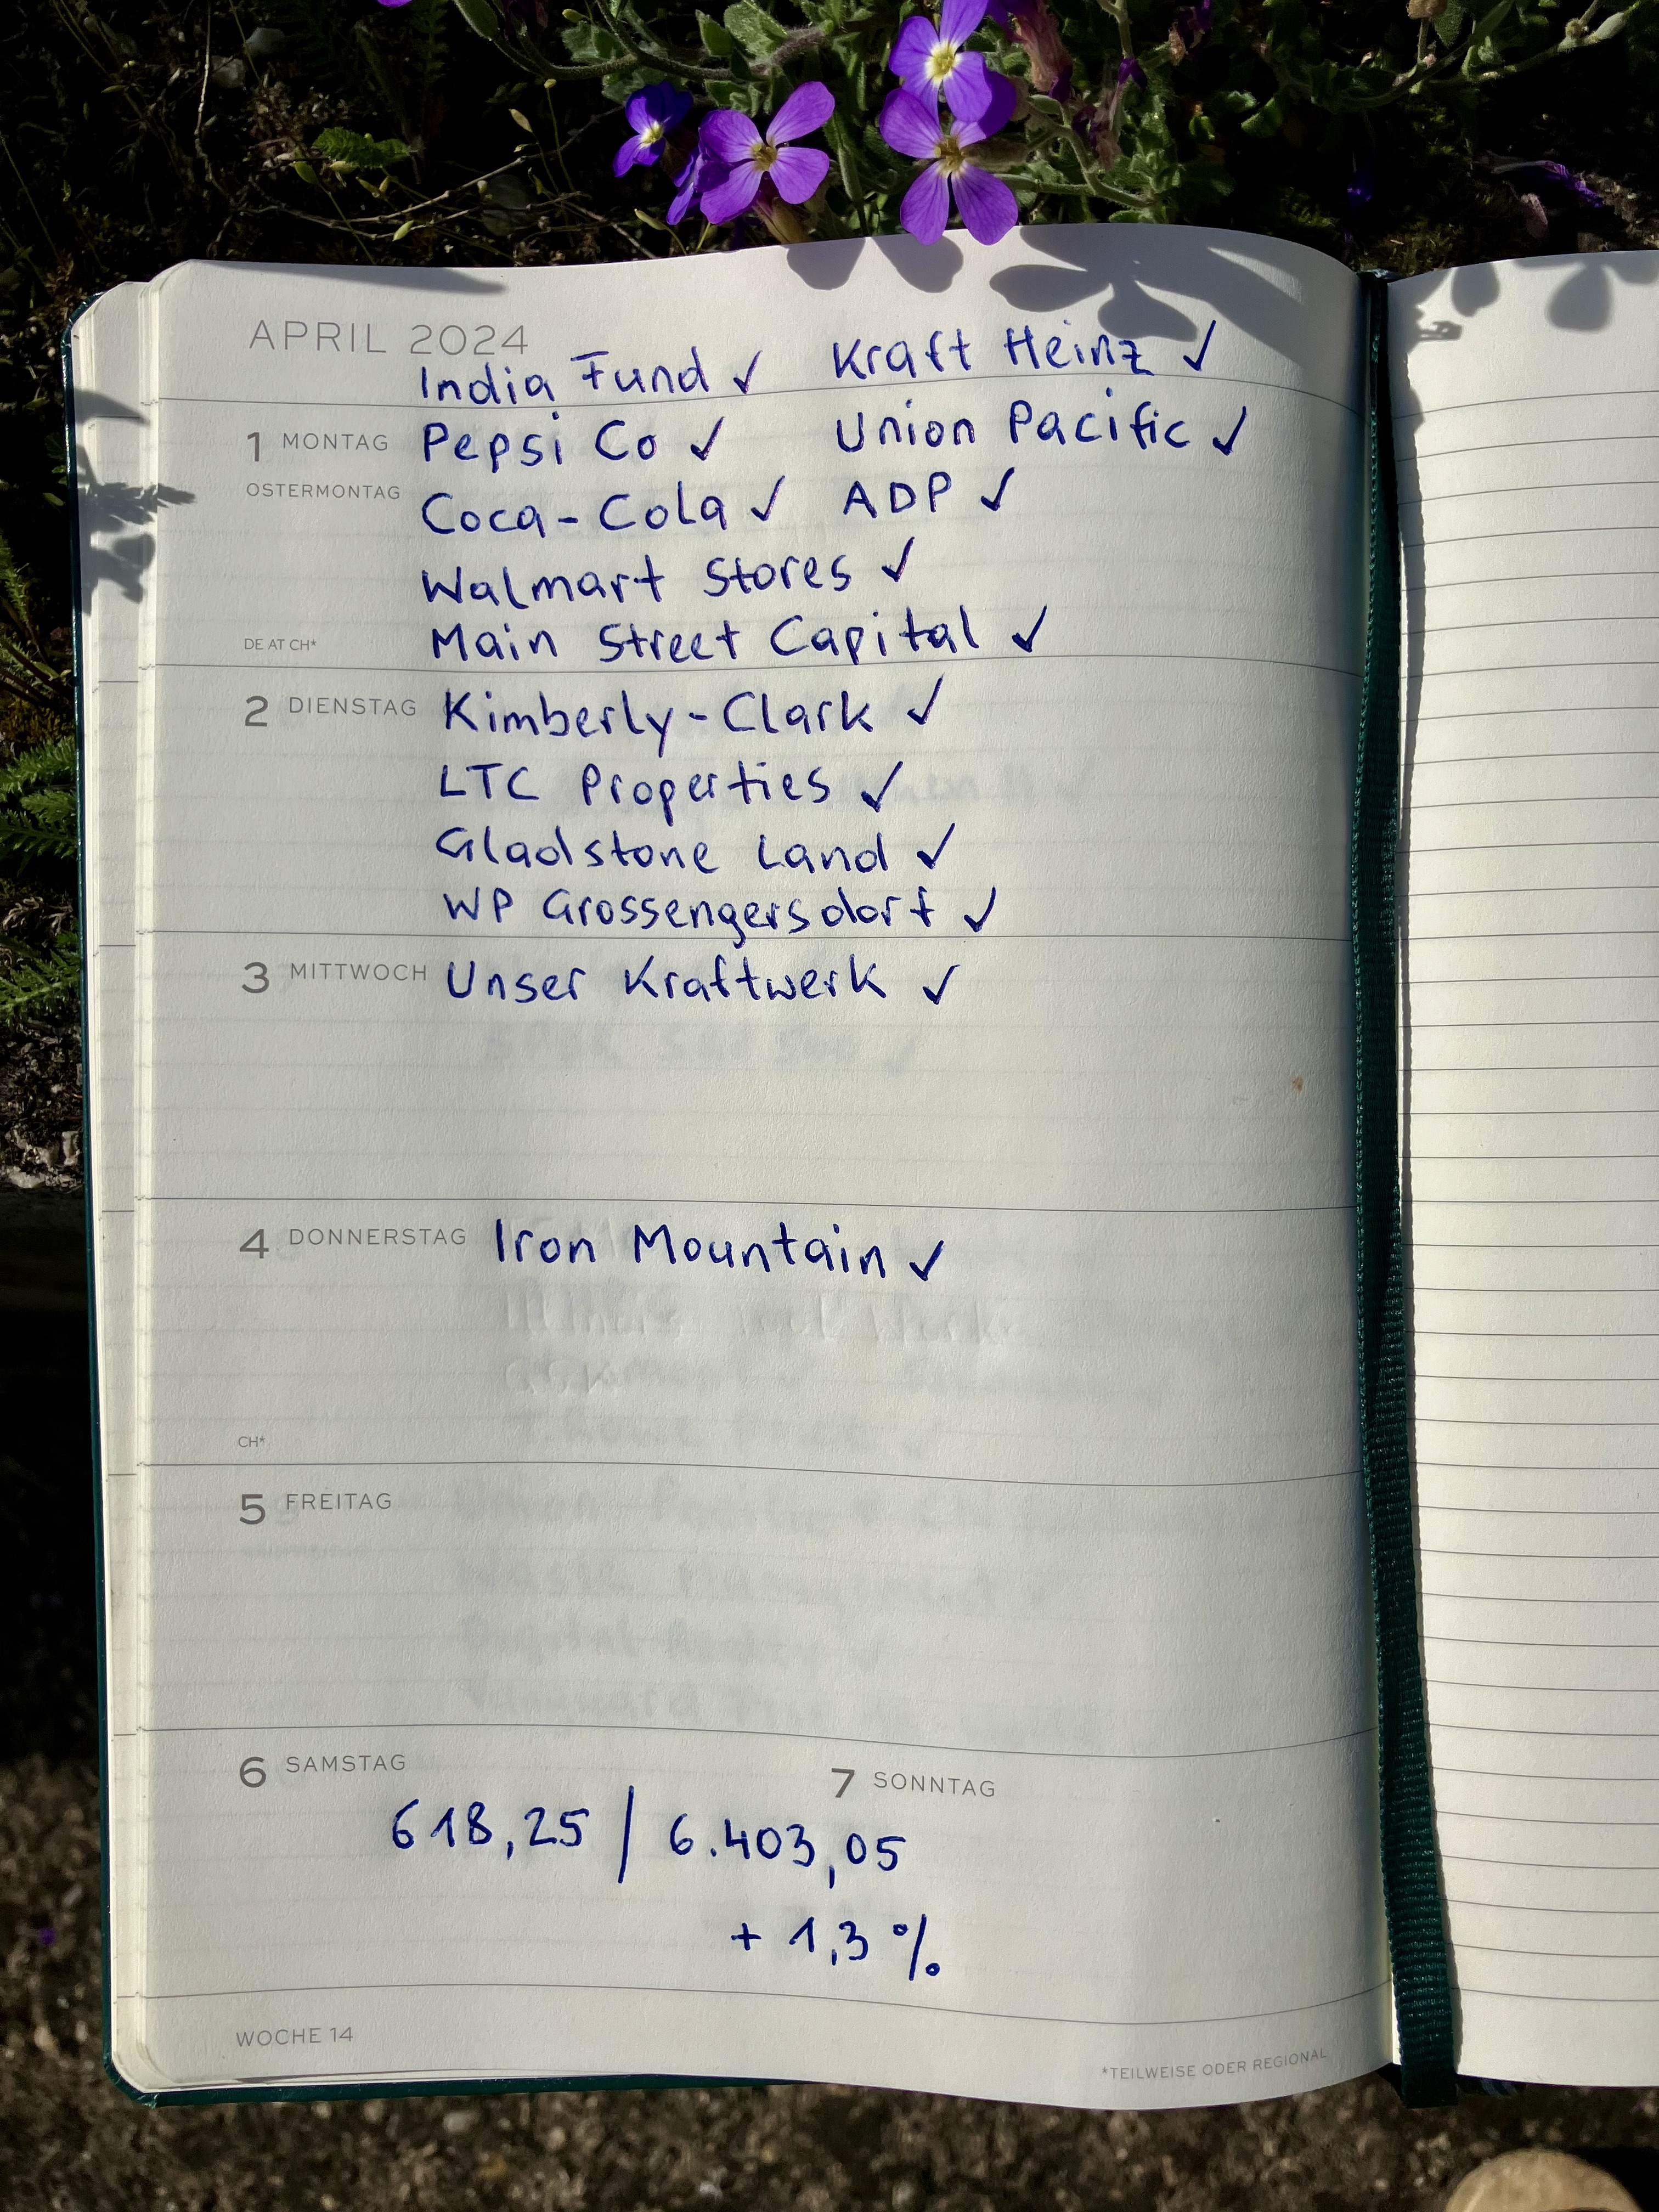 APRIL 2024
India Fund ✓ Kraft Heinz ✓
1 MONTAG Pepsi Co ✓ Union Pacific ✓
OSTERMONTAG Coca-Cola ✓ ADP ✓
Walmart Stores ✓
DE AT CH* Main Street Capital ✓
2 DIENSTAG Kimberly-Clark ✓
LTC Properties ✓
Gladstone Land ✓
WP Grossengersdorf ✓
3 MITTWOCH Unser Kraftwerk ✓
4 DONNERSTAG Iron Mountain ✓
CH*
5 FREITAG
6 SAMSTAG 7 SONNTAG
618,25 / 6.403,05
+ 1,3 %
WOCHE 14
*TEILWEISE ODER REGIONAL